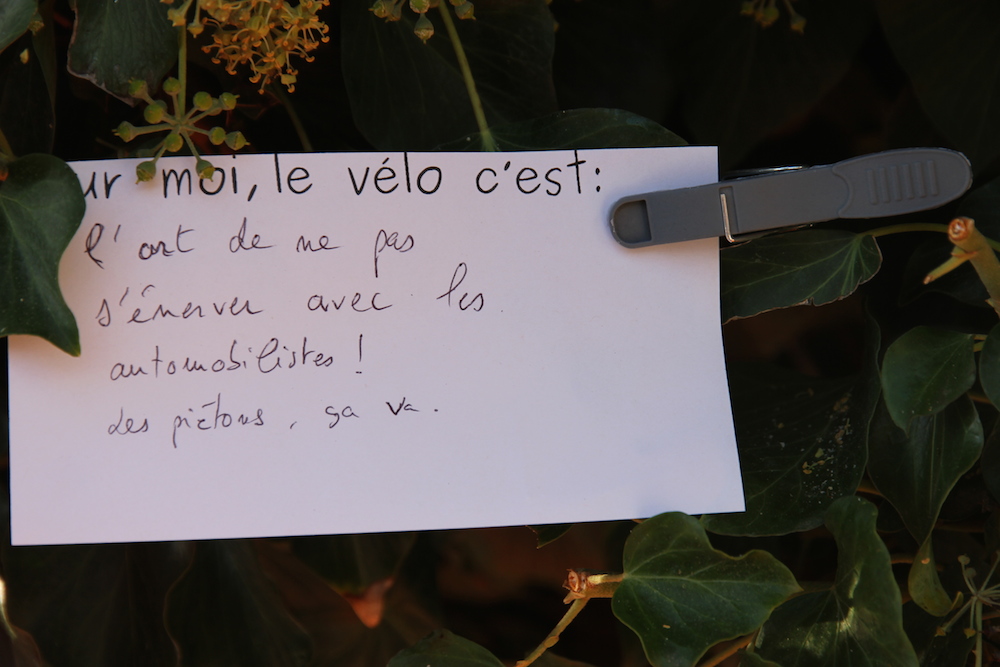 ur moi, le vélo c'est:
l'art de ne pas
s'énerver avec les
automobilistes !
Les piétons, ça va.